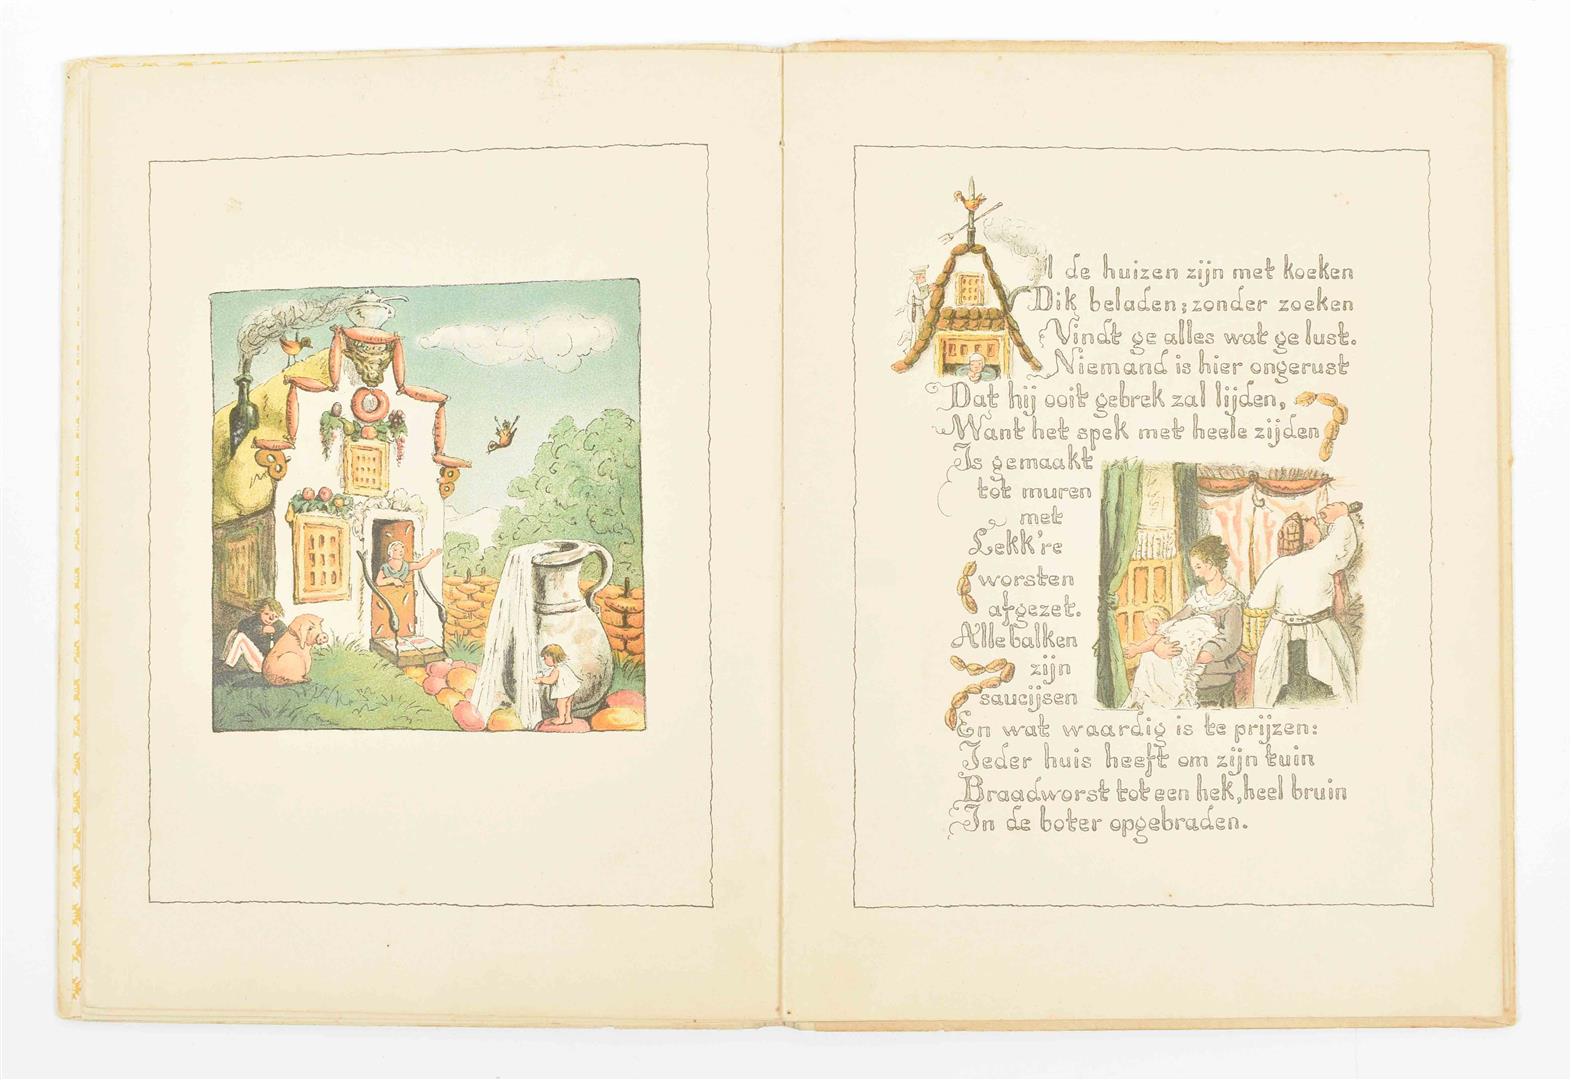 Al de huizen zijn met koeken
Dik beladen; zonder zoeken
Vindt ge alles wat ge lust.
Niemand is hier ongerust
Dat hij ooit gebrek zal lijden,
Want het spek met heele zijden
Is gemaakt
tot muren
met
Lekk're
worsten
afgezet.
Alle balken
zijn
saucijsen
En wat waardig is te prijzen:
Ieder huis heeft om zijn tuin
Braadworst tot een hek, heel bruin
In de boter opgebraden.